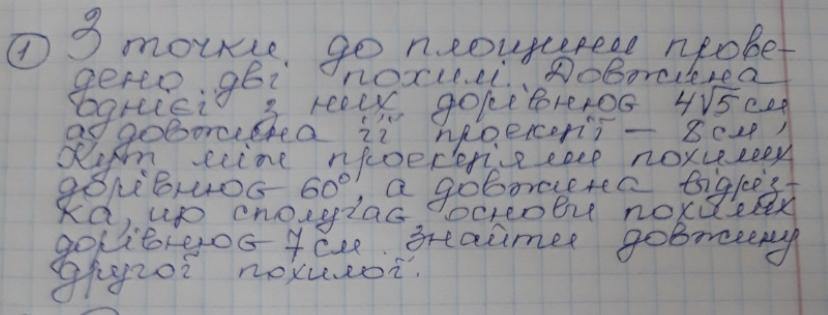 1 З точки до площини прове-
дено дві похилі. Довжина
однієї з них дорівнює 4√5 см,
а довжина її проекції – 8 см,
Кут між проекціями похилих
дорівнює 60°, а довжина відріз-
ка, що сполучає основи похилих
дорівнює 7 см. Знайти довжину
другої похилої.